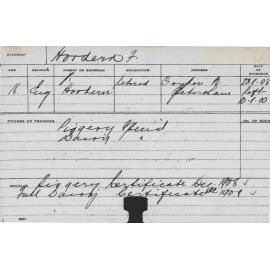 STUDENT Hordern F.
AGE RELIGION PARENT OR GUARDIAN OCCUPATION ADDRESS DATE OF ENTRANCE
16 Eng Hordern Retired Gordon Rd
Left
10.1.10
COURSE OF TRAINING
Piggery Special
Dairy "
Piggery Certificate Dec. 1908
Full Dairy Certificate Dec 1909